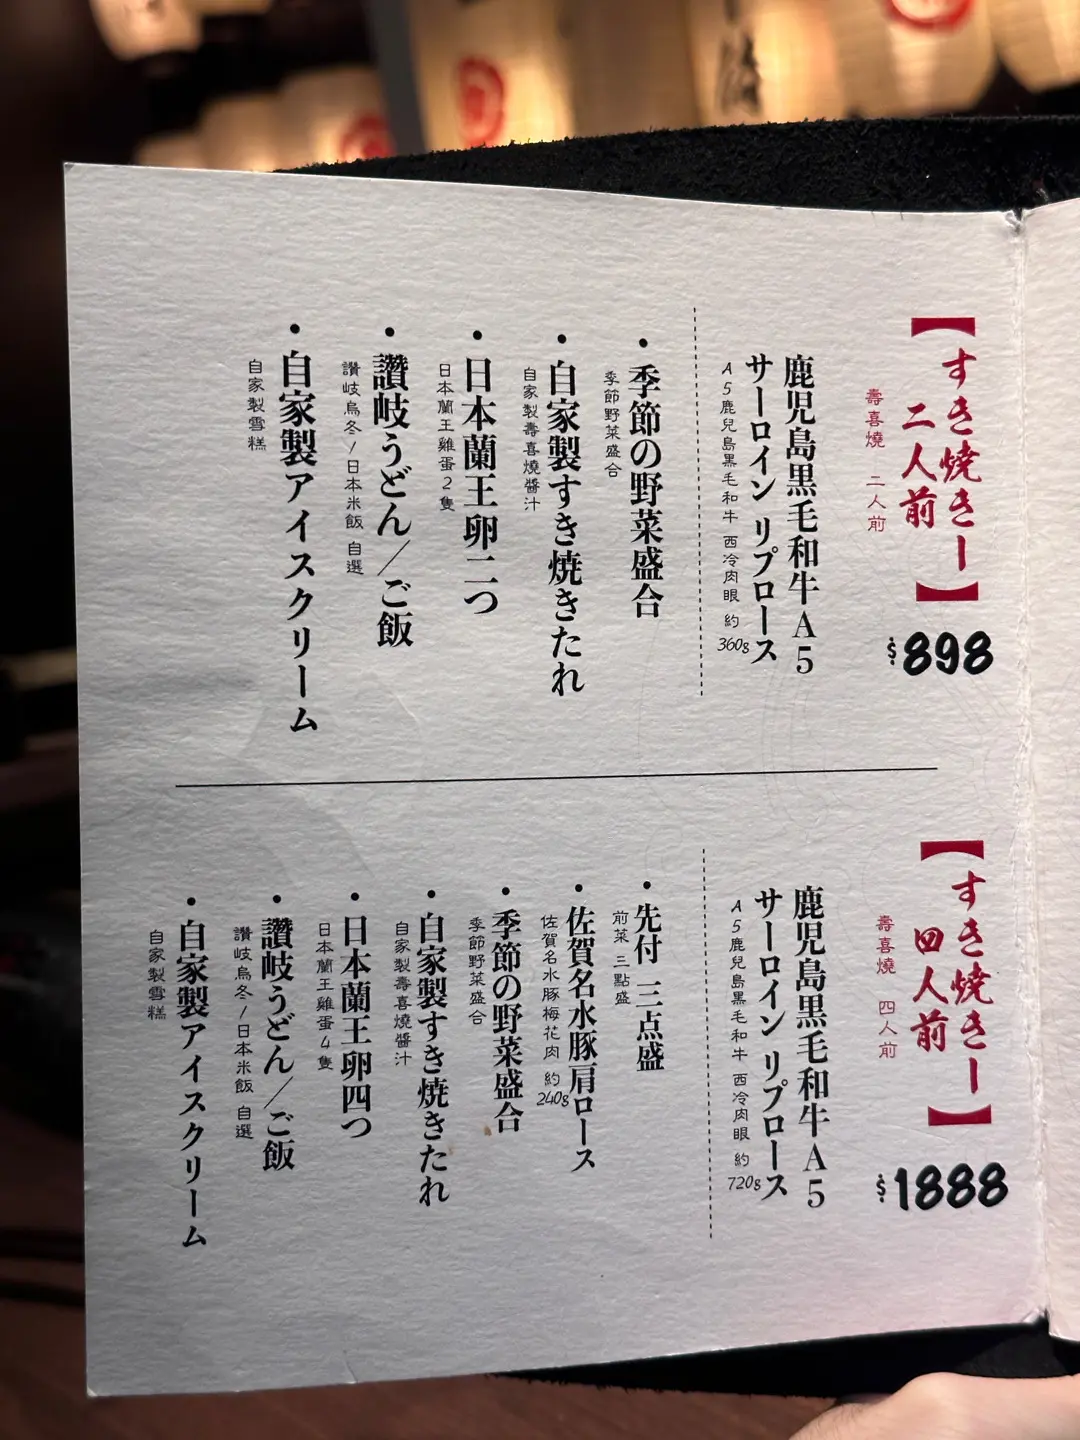 【すき焼きー
二人前】
壽喜燒 二人前
$898
鹿児島黒毛和牛A5
サーロイン リブロース
A5鹿兒島黑毛和牛 西冷肉眼 約360g
・季節の野菜盛合
季節野菜盛合
・自家製すき焼きたれ
自家製壽喜燒醬汁
・日本蘭王卵二つ
日本蘭王雞蛋2隻
・讃岐うどん/ご飯
讃岐烏冬/日本米飯 自選
・自家製アイスクリーム
自家製雪糕
【すき焼きー
四人前】
壽喜燒 四人前
$1888
鹿児島黒毛和牛A5
サーロイン リブロース
A5鹿兒島黑毛和牛 西冷肉眼 約720g
・先付 三点盛
前菜 三點盛
・佐賀名水豚肩ロース
佐賀名水豚梅花肉 約240g
・季節の野菜盛合
季節野菜盛合
・自家製すき焼きたれ
自家製壽喜燒醬汁
・日本蘭王卵四つ
日本蘭王雞蛋4隻
・讃岐うどん/ご飯
讃岐烏冬/日本米飯 自選
・自家製アイスクリーム
自家製雪糕